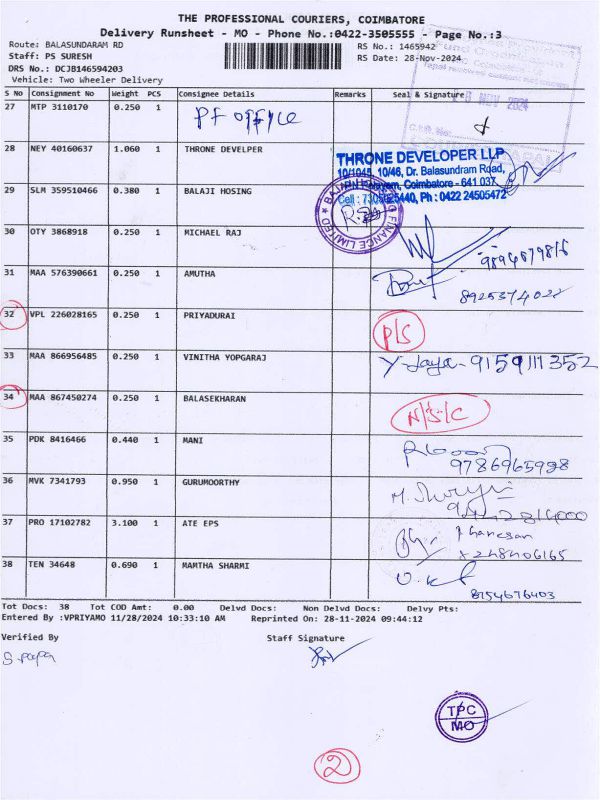 THE PROFESSIONAL COURIERS, COIMBATORE
Delivery Runsheet - MO - Phone No.:0422-3505555 - Page No.:3
Route: BALASUNDARAM RD RS No.: 1465942
Staff: PS SURESH RS Date: 28-Nov-2024
DRS No.: DCJB146594203
Vehicle: Two Wheeler Delivery
S No Consignment No Weight PCS Consignee Details Remarks Seal & Signature
NOV 2024
27 MTP 3110170 0.250 1 PF office
28 NEY 40160637 1.060 1 THRONE DEVELPER
THRONE DEVELOPER LLP
10/1045, 10/46, Dr. Balasundram Road,
Coimbatore - 641 037.
Ph : 0422 24505472
29 SLM 359510466 0.380 1 BALAJI HOSING
FINANCE LIMITED
30 OTY 3868918 0.250 1 MICHAEL RAJ
9894679816
31 MAA 576390661 0.250 1 AMUTHA
8925374022
32 VPL 226028165 0.250 1 PRIYADURAI P/S
33 MAA 866956485 0.250 1 VINITHA YOPGARAJ Y. Jaya - 9159111352
34 MAA 867450274 0.250 1 BALASEKHARAN N/S/C
35 PDK 8416466 0.440 1 MANI
9786965998
36 MVK 7341793 0.950 1 GURUMOORTHY
37 PRO 17102782 3.100 1 ATE EPS
38 TEN 34648 0.690 1 MAMTHA SHARMI
8754676403
Tot Docs: 38 Tot COD Amt: 0.00 Delvd Docs: Non Delvd Docs: Delvy Pts:
Entered By :VPRIYAMO 11/28/2024 10:33:10 AM Reprinted On: 28-11-2024 09:44:12
Verified By Staff Signature
S. papa
TPC
MO
2